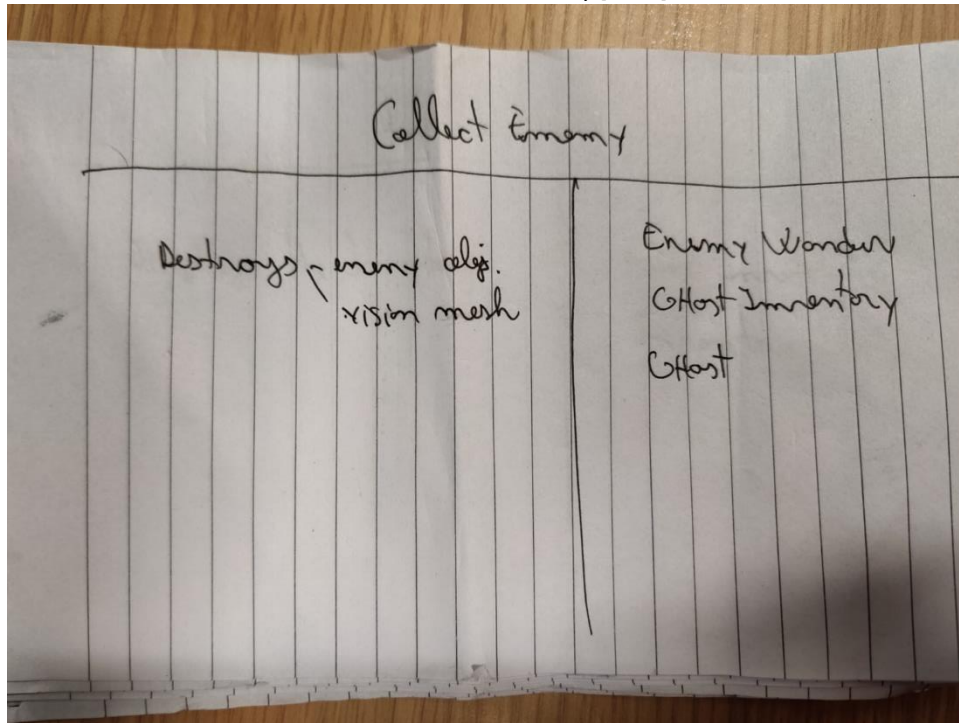 Collect Enemy
Destroys enemy obj.
vision mesh
Enemy Wander
GHost Inventory
GHost